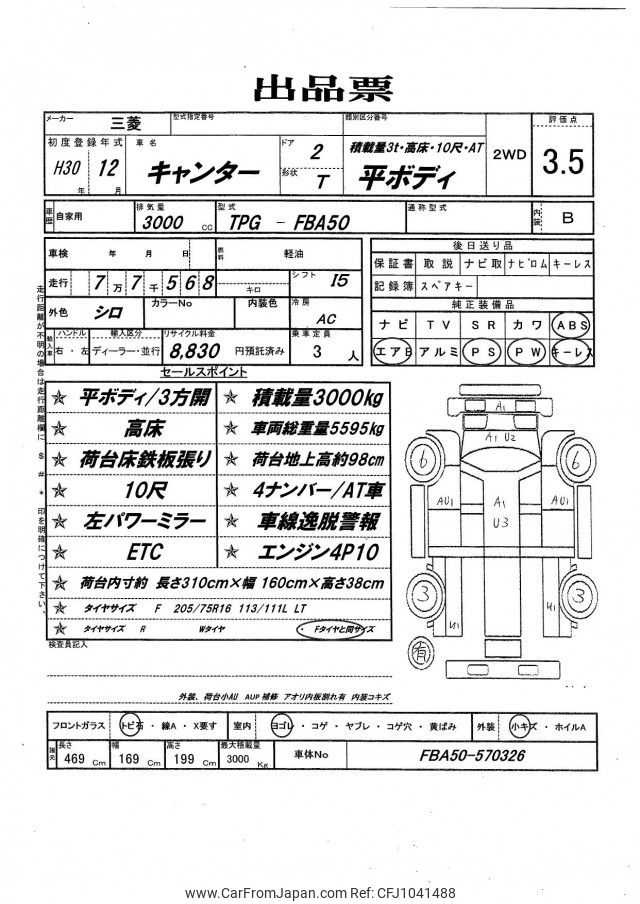 出品票
メーカー 三菱 型式指定番号 類別区分番号 評価点
初度登録年式 車名 ドア 2 積載量3t・高床・10尺・AT 2WD 3.5
H30年 12月 キャンター 形状 T 平ボディ
車歴 自家用 排気量 3000 cc 型式 TPG - FBA50 通称型式 内装 B
車検 年 月 日 燃料 軽油
走行 7万7千568 キロ シフト I5
外色 シロ カラーNo 内装色 冷房 AC
輸入車 ハンドル 右・左 輸入区分 ディーラー・並行 リサイクル料金 8,830 円預託済み 乗車定員 3 人
後日送り品
保証書 取説 ナビ取 ナビロム キーレス
記録簿 スペアキー
純正装備品
ナビ TV SR カワ ABS
エアB アルミ PS PW キーレス
走行距離が不明の場合は走行距離欄に $ # * 印を明確につけて下さい。
セールスポイント
☆ 平ボディ/3方開 ☆ 積載量3000kg
☆ 高床 ☆ 車両総重量5595kg
☆ 荷台床鉄板張り ☆ 荷台地上高約98cm
☆ 10尺 ☆ 4ナンバー/AT車
☆ 左パワーミラー ☆ 車線逸脱警報
☆ ETC ☆ エンジン4P10
☆ 荷台内寸約 長さ310cm×幅 160cm×高さ38cm
☆ タイヤサイズ F 205/75R16 113/111L LT
☆ タイヤサイズ R Wタイヤ ・Fタイヤと同サイズ
A1
A1 U2
6 6
AU1 A1 AU1
U3
3 3
U1 U1
有
検査員記入
外装、荷台小AU AUP補修 アオリ内板割れ有 内装コキズ
フロントガラス トビ石・線A・X要す 室内 ヨゴレ・コゲ・ヤブレ・コゲ穴・黄ばみ 外装 小キズ・ホイルA
諸元 長さ 469 Cm 幅 169 cm 高さ 199 Cm 最大積載量 3000 Kg 車体No FBA50-570326
www.CarFromJapan.com Ref: CFJ1041488